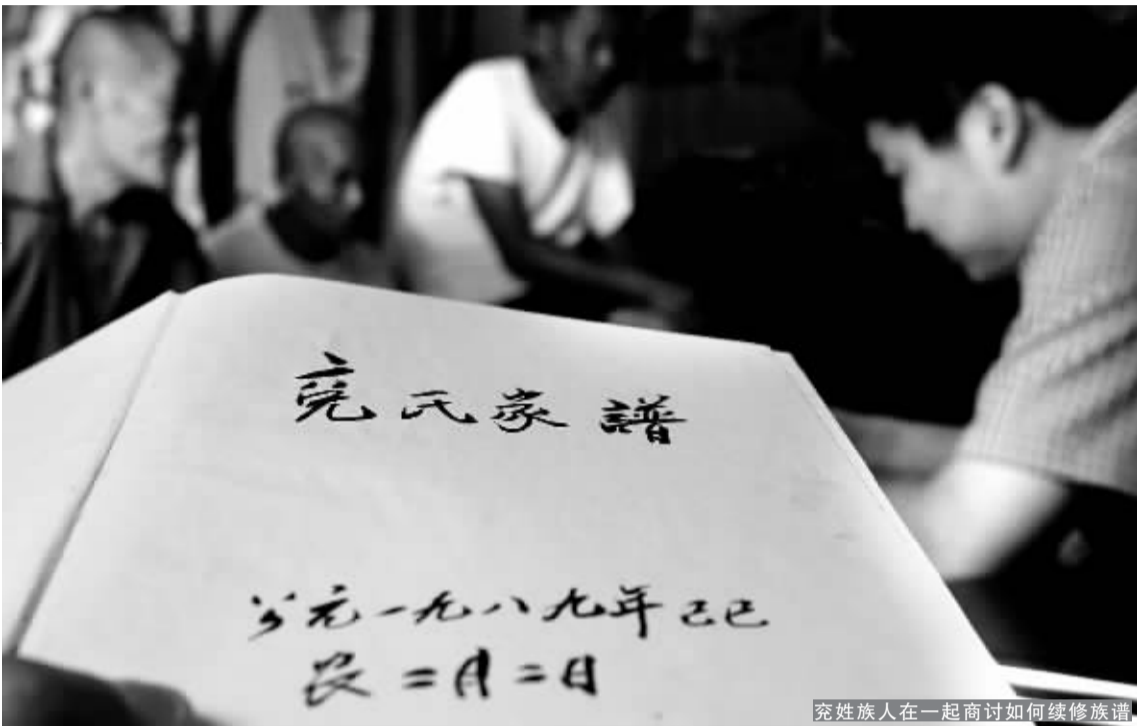 兖氏家譜
公元一九八九年己巳
农二月二日
兖姓族人在一起商讨如何续修族谱